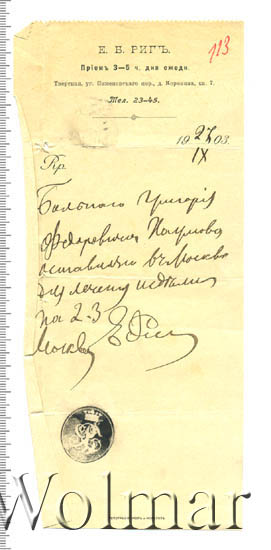 Е. Б. РИГЪ.
113
Пріемъ 3—5 ч. дня ежедн.
Тверская, уг.  пер., д. Коровина, кв. 7.
Тел. 23-45.
19 27/IX 03.
Rp.
Больного Григорія
Ѳедоровича Наумова
оставить въ Москве
для лечения недели
на 2-3
Москва
Wolmar